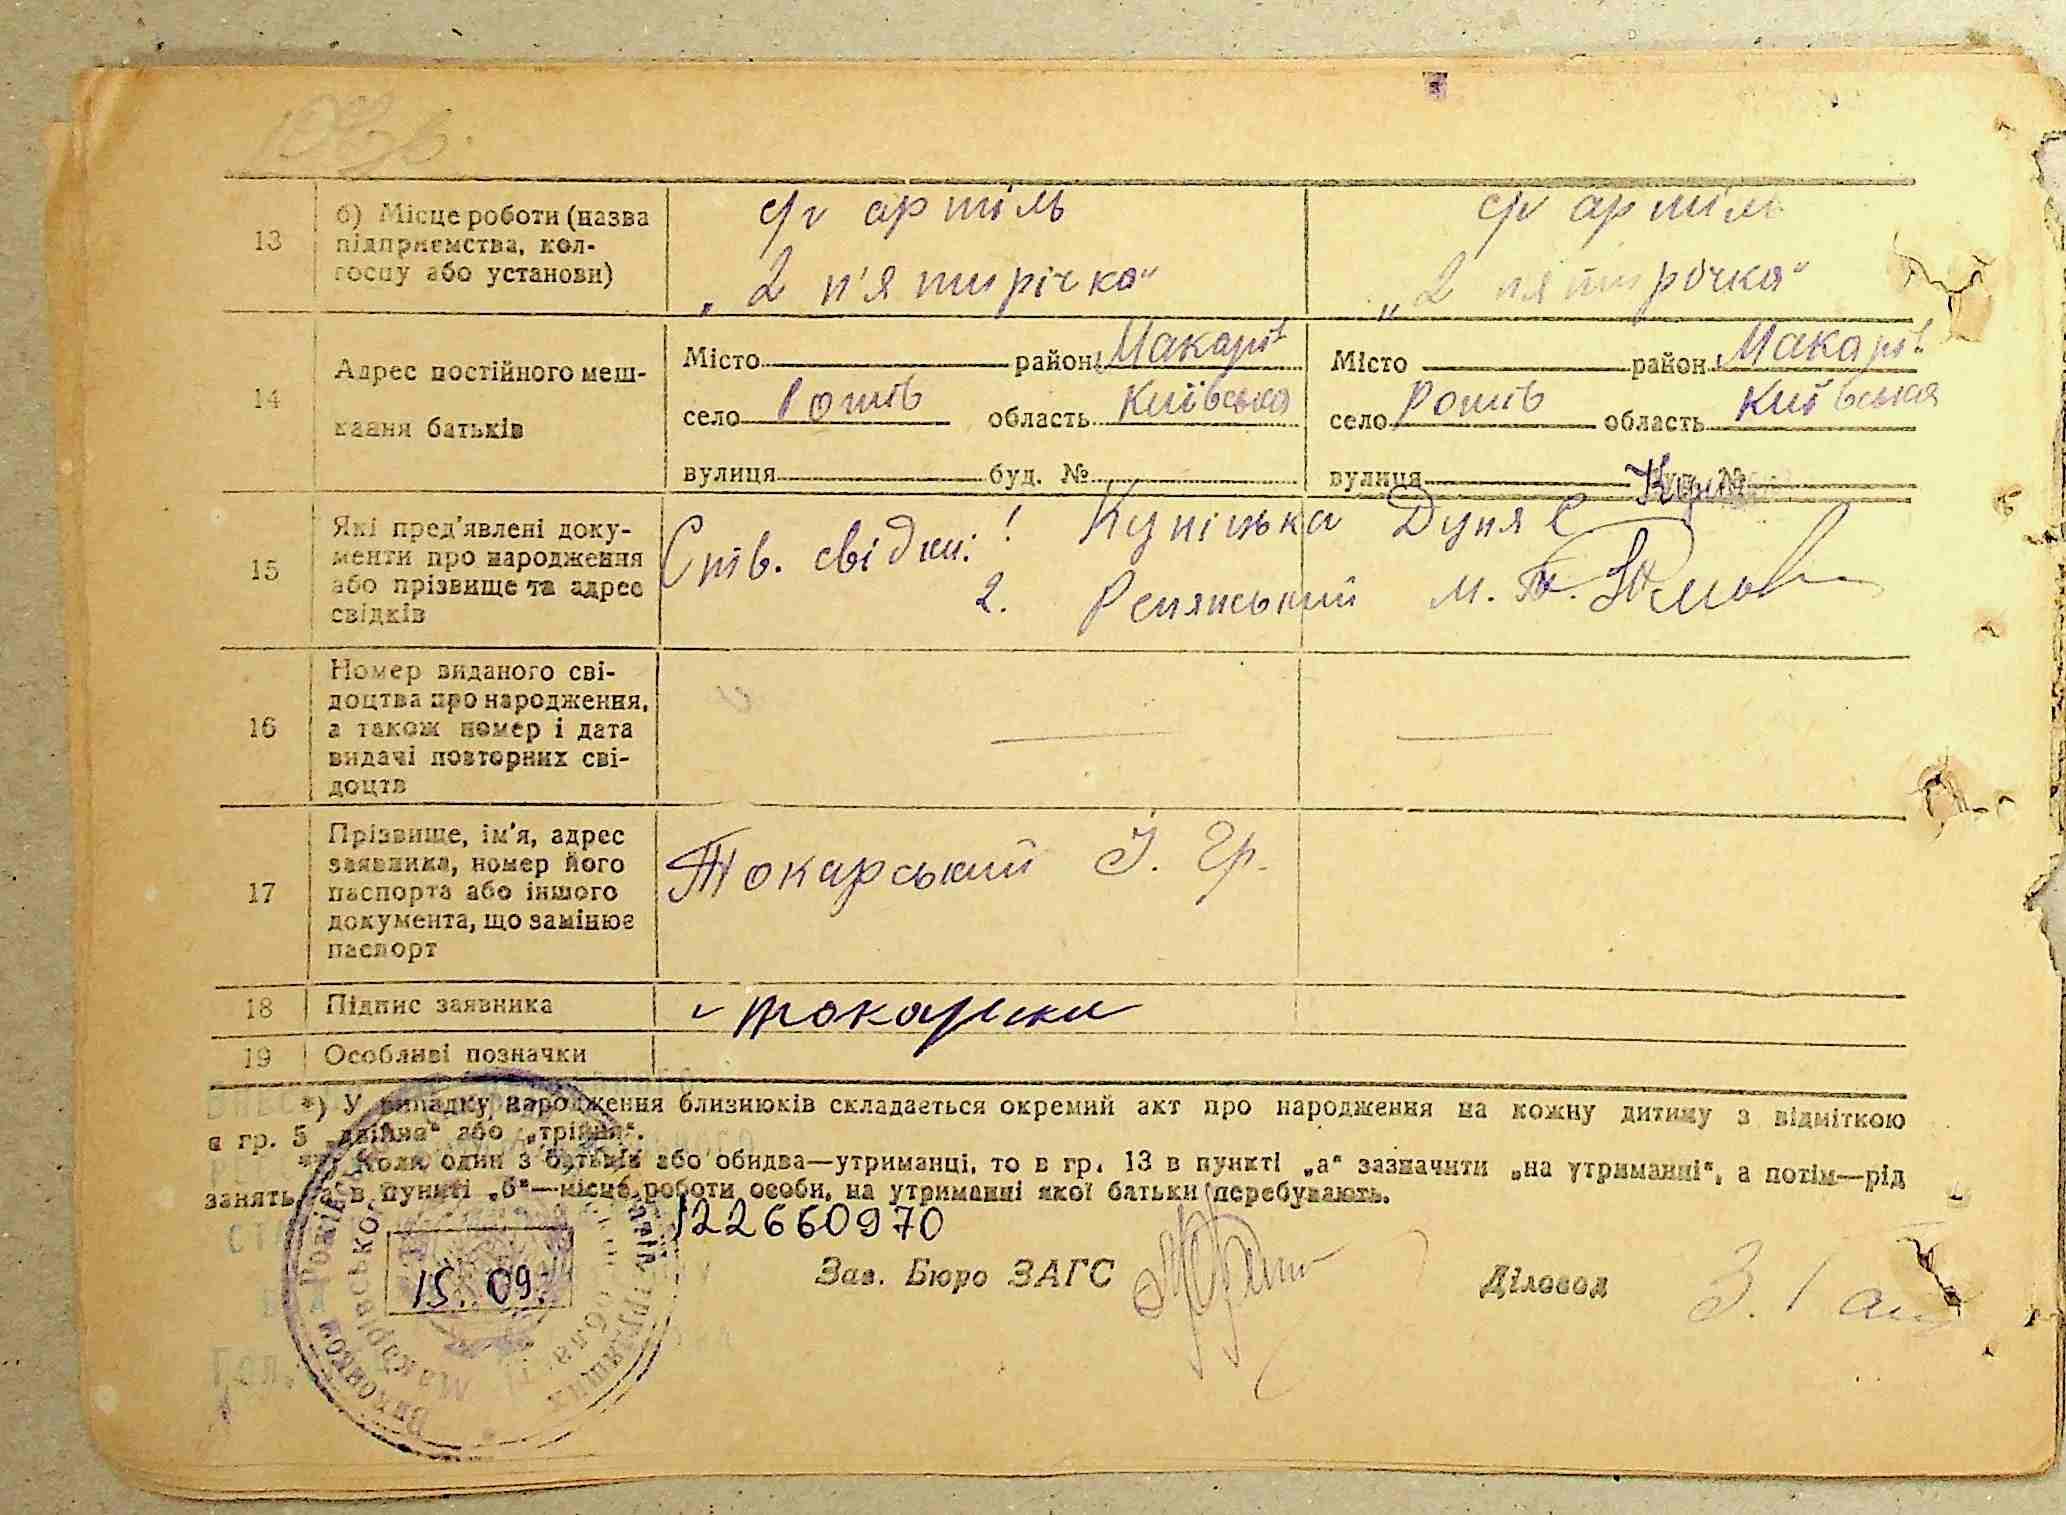 13
б) Місце роботи (назва
підприємства, кол-
госпу або установи)
с/г артіль
„2 п'ятирічка"
с/г артіль
„2 п'ятирічка"
14
Адрес постійного меш-
кання батьків
Місто район Макарів
село Рожів область Київська
вулиця буд. №
Місто район Макарів
село Рожів область Київська
вулиця
15
Які пред'явлені доку-
менти про народження
або прізвище та адрес
свідків
Ств. свідки: 1 Дуня Є
2. М. Т.
16
Номер виданого сві-
доцтва про народження,
а також номер і дата
видачі повторних сві-
доцтв
17
Прізвище, ім'я, адрес
заявника, номер його
паспорта або іншого
документа, що замінює
паспорт
Токарський І. Гр.
18
Підпис заявника
19
Особливі позначки
*) У випадку народження близнюків складається окремий акт про народження на кожну дитину з відміткою
в гр. 5 „двійня" або „трійня".
**) Коли один з батьків або обидва—утриманці, то в гр. 13 в пункті „а" зазначити „на утриманні", а потім—рід
занять, а в пункті „б"—місце роботи особи, на утриманні якої батьки перебувають.
122660970
15.09.
Зав. Бюро ЗАГС
Діловод